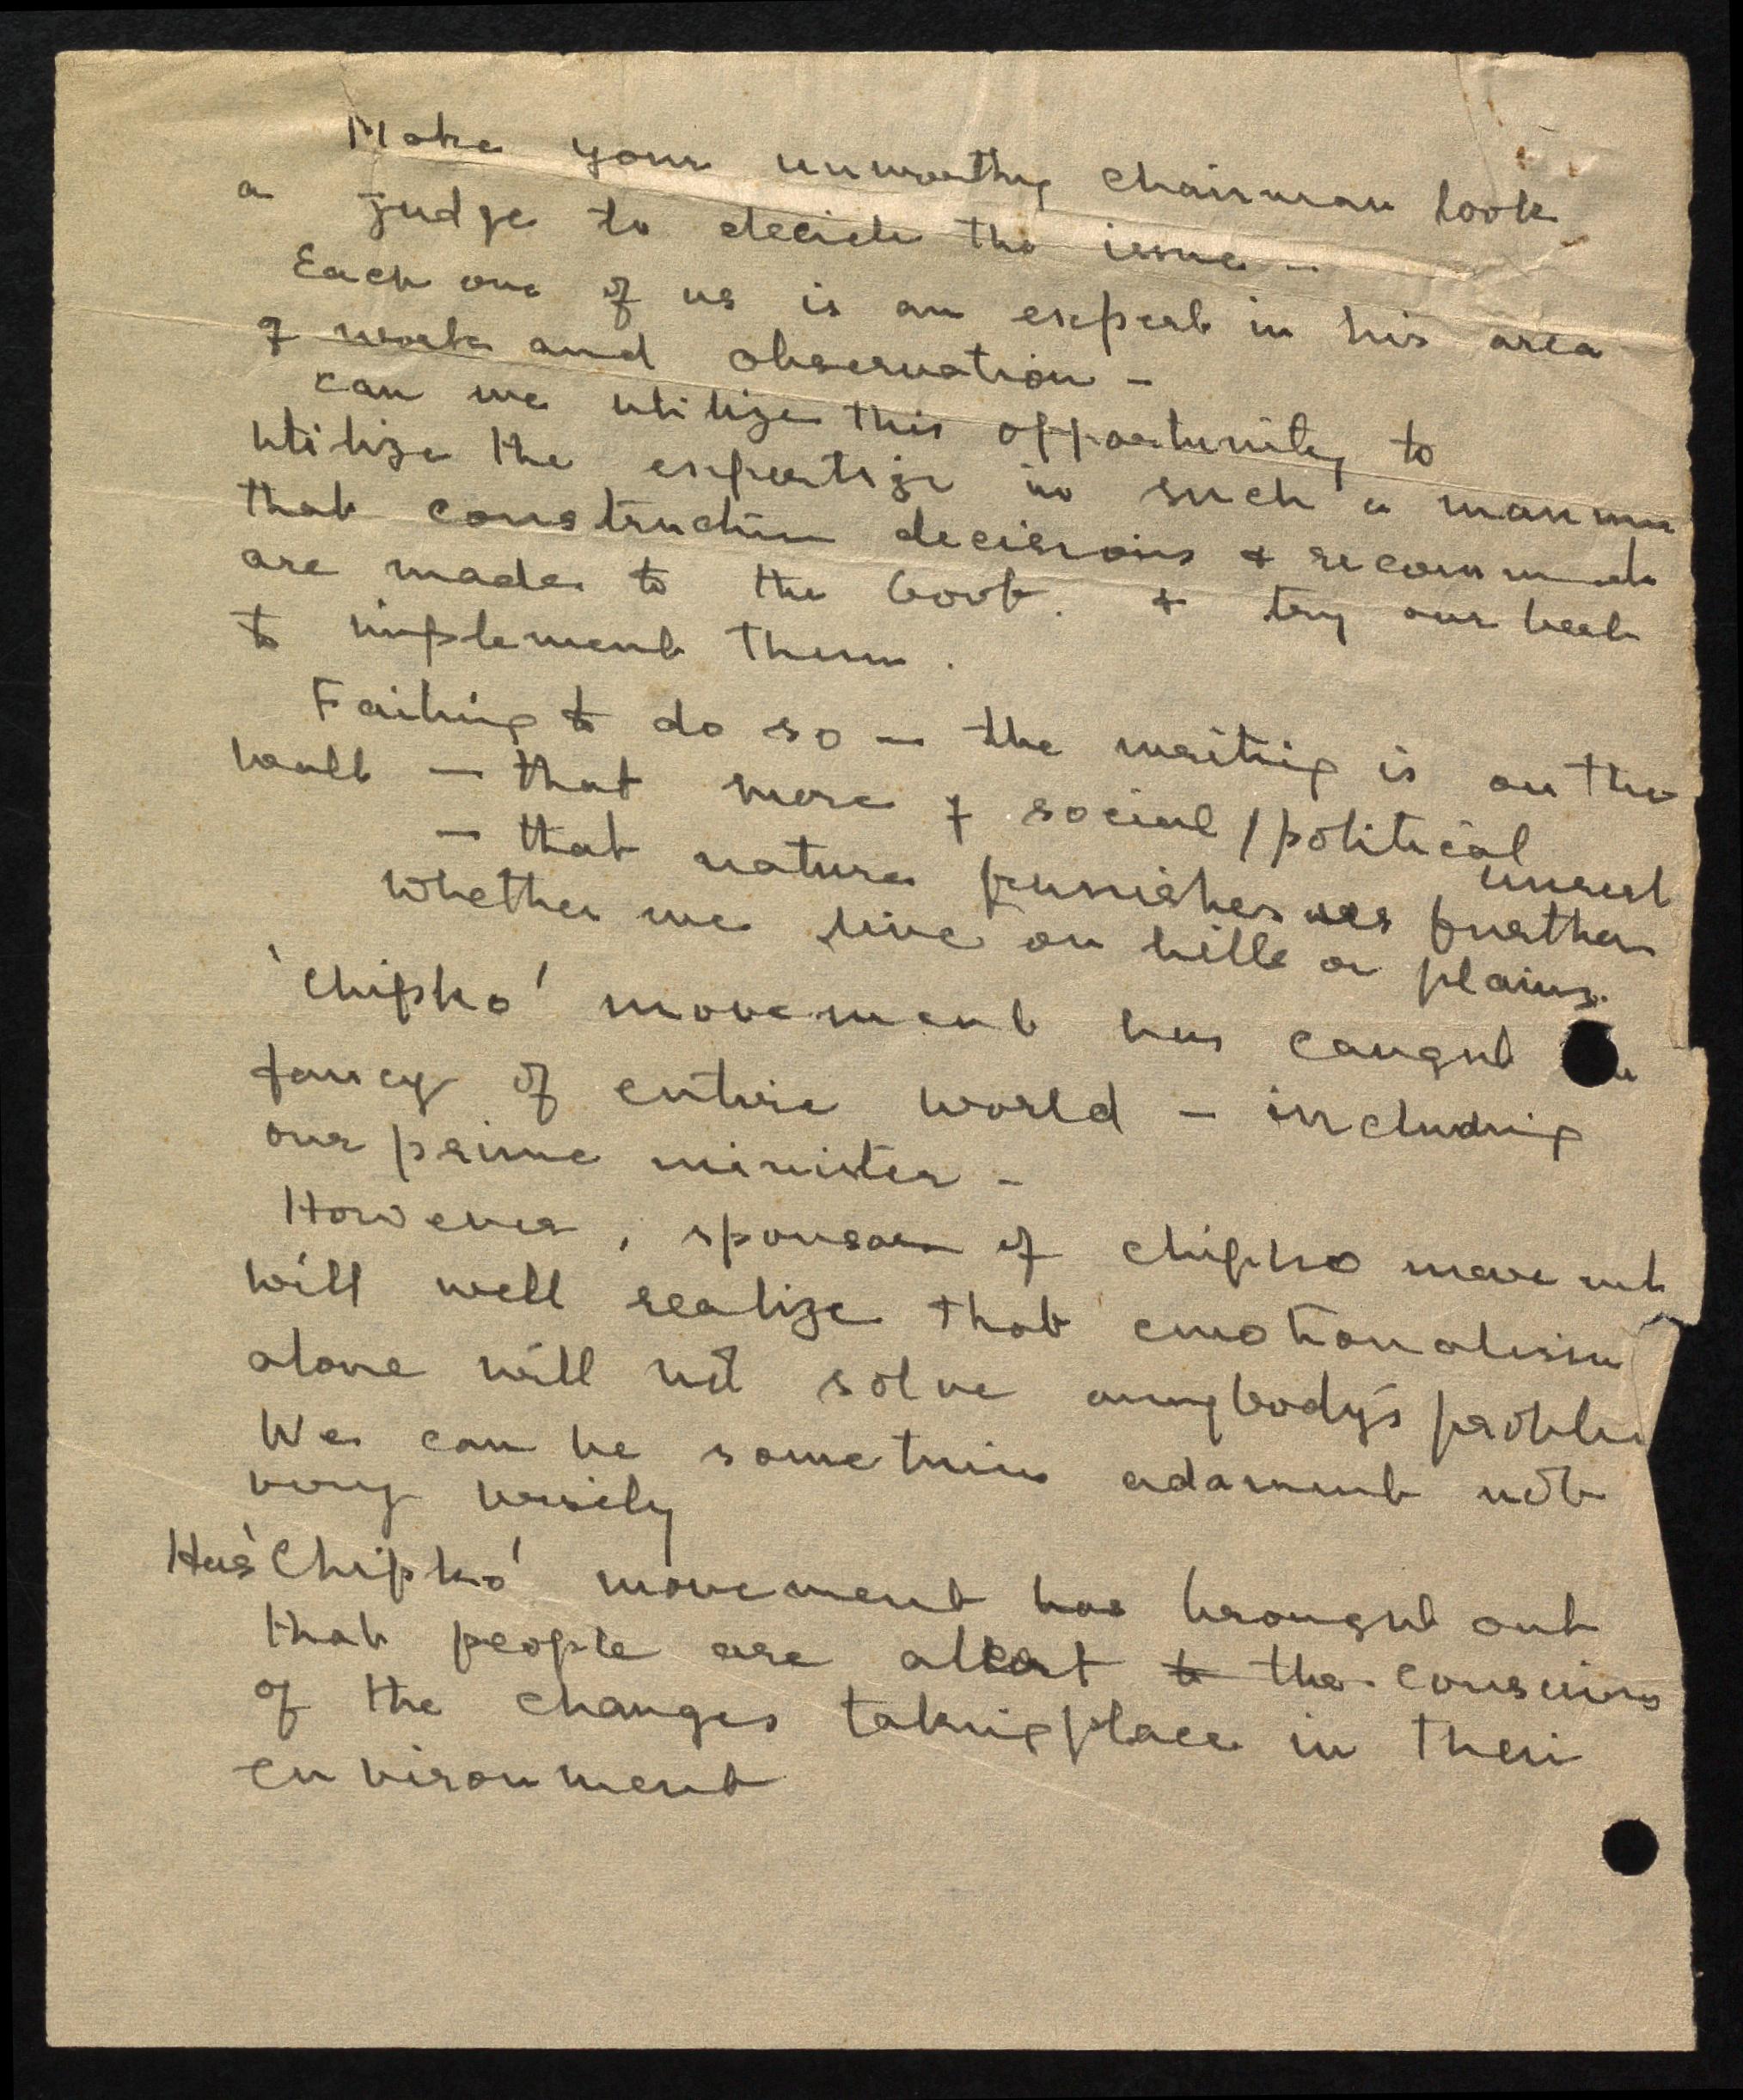 Make your unworthy chairman look
a judge to decide the issue –
Each one of us is an expert in his area
of work and observation –
can we utilize this opportunity to
utilize the expertize in such a manner
that constructive decisions &
are made to the Govt. & try our best
to implement them.
Failing to do so – the writing is on the
wall – that more of social / political
unrest
– that nature punishes us further
whether we live on hills or plains.
'Chipko' movement has caught
fancy of entire world – including
our prime minister –
However, sponsors of chipko
will well realize that emotionalism
alone will not solve anybody's
We can be sometimes adament not
very wisely
Has 'Chipko' movement has brought out
that people are alert to the conscious
of the changes taking place in their
environment